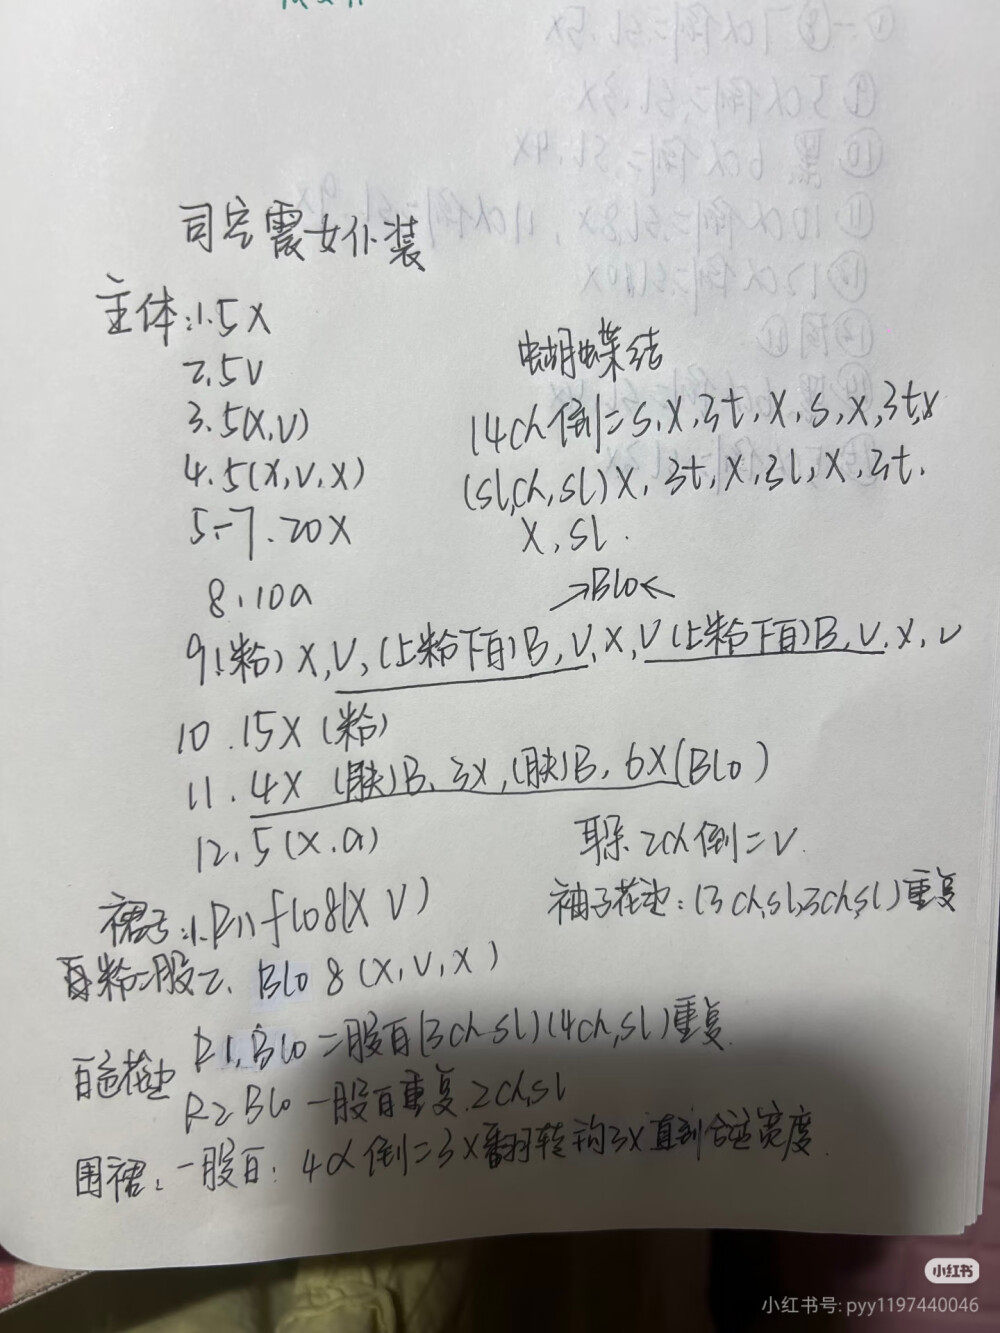 司空震女仆装
主体:1.5X
2.5V
3.5(X,V)
4.5(X,V,X)
5-7.20X
8.10A
9.(粉)X,V,(上粉下白)B,V,X,V(上粉下白)B,V,X,V
10.15X(粉)
11.4X(肤)B,3X,(肤)B,6X(Blo)
12.5(X.A)
蝴蝶结
14ch倒二S,X,3t,X,S,X,3t,X
(sl,ch,sl)X,3t,X,3l,X,3t.
X,sl.
→Blo←
耳朵2ch倒二V.
袖子花边:(3ch,sl,3ch,sl)重复
裙子:1.R11 flo8(X V)
白粉一股2.Blo8(X,V,X)
白色花边 R1,Blo二股白(3ch sl)(4ch,sl)重复.
R2 Blo一股白重复.2ch,sl
围裙:一股白:4ch倒二3X翻转钩3X直到合适宽度.
小红书
小红书号:pyy1197440046